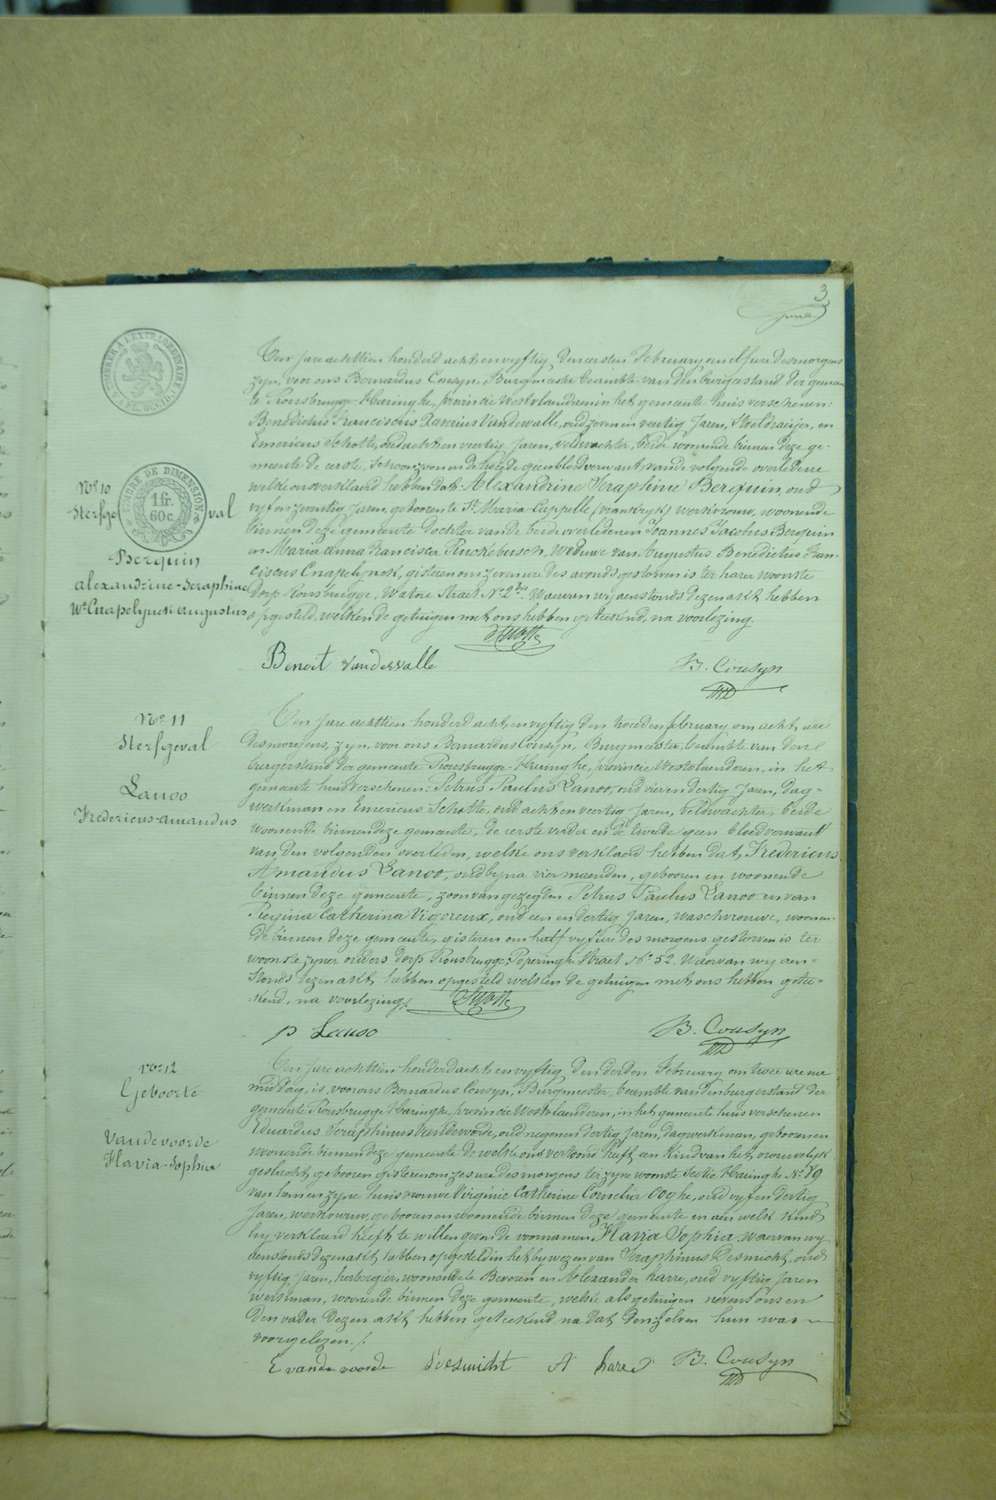 3
TIMBRE DE DIMENSION
1 fr.
60 c.
No 10
Sterfgeval
Berquin
Alexandrine-Seraphine
We Cnapelynck Augustus
Ten jare achttien honderd acht en vyftig, den eersten February om elf ure des morgens
zyn, voor ons Bernardus Cousyn, Burgmeester beambte van den burgerstand der gemeen-
te Rousbrugge-Haringhe, provincie Westvlaanderen in het gemeente huis verschenen:
Benedictus Franciscus Xaverius Vandewalle, oud zeven en veertig Jaren, Stoeldraeijer, en
Emericus Schotte, oud acht en veertig Jaren, veldwachter, beide woonende binnen deze ge-
meente de eerste, Schoonzoon en de tweede geen bloedverwant van de volgende overledene
welke ons verklaerd hebben dat Alexandrine Seraphine Berquin, oud
vyf en zeventig Jaren, geboren te Ste Maria Cappelle, (frankryk) werkvrouw, woonende
binnen deze gemeente dochter van de beide overledenen Joannes Jacobus Berquin
en Maria Anna Francisca Pinckebusch, Weduwe van Augustus Benedictus Fran-
ciscus Cnapelynck, gisteren om zeven ure des avonds gestorven is ter harer woonste
dorp Rousbrugge, Watou Straet No 2. Waervan wy aenstonds dezen akt hebben
opgesteld, welken de getuigen met ons hebben geteekend, na voorlezing.
Schotte
Benoit Vandewalle B. Cousyn
No 11
Sterfgeval
Lanoo
Fredericus-Amandus
Ten Jare achttien honderd acht en vyftig den tweeden february om acht ure
des morgens, zyn, voor ons Bernardus Cousyn, Burgmeester, beambte van den
burgerstand der gemeente Rousbrugge-Haringhe, provincie Westvlaenderen, in het
gemeente huis verschenen: Petrus Paulus Lanoo, oud vier en dertig Jaren, dag-
werkman en Emericus Schotte, oud acht en veertig Jaren, veldwachter, beide
woonende binnen deze gemeente, de eerste vader en de tweede geen bloedverwant
van den volgenden overleden, welke ons verklaerd hebben dat, Fredericus
Amandus Lanoo, oud byna vier maenden, geboren en woonende
binnen deze gemeente, zoon van gezegden Petrus Paulus Lanoo en van
Regina Catherina Vigoreux, oud een en dertig Jaren, waschvrouwe, woonen-
de binnen deze gemeente, gisteren om half vyf ure des morgens gestorven is ter
woonste zyner ouders dorp Rousbrugge Poperinghe Straet No 52. Waervan wy aen-
stonds dezen akt hebben opgesteld welken de getuigen met ons hebben getee-
kend, na voorlezing. Schotte
p Lanoo B. Cousyn
No 12
Geboorte
Vandevoorde
Flavia-Sophia
Ten jare achttien honderd acht en vyftig, den derden February om twee ure na
middag, is, voor ons Bernardus Cousyn, Burgmeester, beambte van den burgerstand der
gemeente Rousbrugge Haringhe, provincie Westvlaenderen, in het gemeente huis verschenen
Eduardus Seraphinus Vandevoorde, oud negen en dertig Jaren, dagwerkman, geboren en
woonende binnen deze gemeente de welke ons vertoond heeft een kind van het vrouwelyk
geslacht, geboren gisteren om zes ure des morgens ter zyner woonste Sectie Haringhe No 89
van hem en zyne huisvrouwe Virginie Catherine Cornelia Ooghe, oud vyf en dertig
Jaren, werkvrouw, geboren en woonende binnen deze gemeente en aen welk kind
hy verklaerd heeft te willen geven de voornamen Flavia Sophia. waervan wy
aenstonds dezen akt hebben opgesteld in het bywezen van Seraphinus Desmicht, oud
vyftig Jaren, herbergier, woonende te Beveren en Alexander Harre, oud vyftig Jaren
werkman, woonende binnen deze gemeente, welke als getuigen nevens ons en
den vader dezen akt hebben geteekend na dat den zelven hun was
voorgelezen ./.
E vandevoorde S Desmicht A harre B. Cousyn